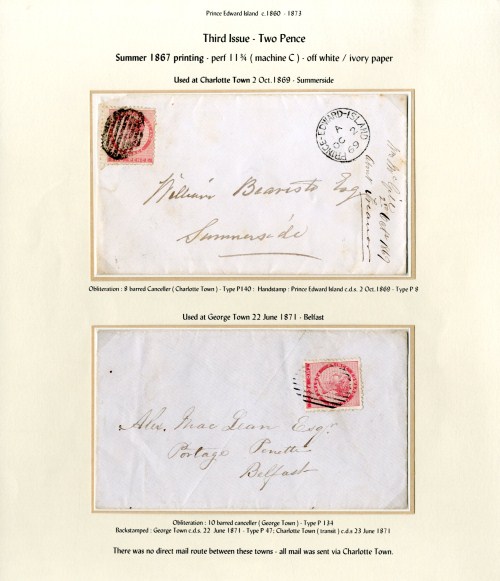 Prince Edward Island c.1860 - 1873
Third Issue - Two Pence
Summer 1867 printing - perf 11¾ ( machine C ) - off white / ivory paper
Used at Charlotte Town 2 Oct.1869 - Summerside
PENCE
PRINCE-EDWARD-ISLAND
A
OC 2
69
William Bearisto Esq
Summerside
Obliteration : 8 barred Canceller ( Charlotte Town ) - Type P140 : Handstamp : Prince Edward Island c.d.s. 2 Oct.1869 - Type P 8
Used at George Town 22 June 1871 - Belfast
Alex. Mac Lean Esqr
Portage Pinette
Belfast
Obliteration : 10 barred canceller ( George Town ) - Type P 134
Backstamped : George Town c.d.s. 22 June 1871 - Type P 47; Charlotte Town ( transit ) c.d.s 23 June 1871
There was no direct mail route between these towns - all mail was sent via Charlotte Town.